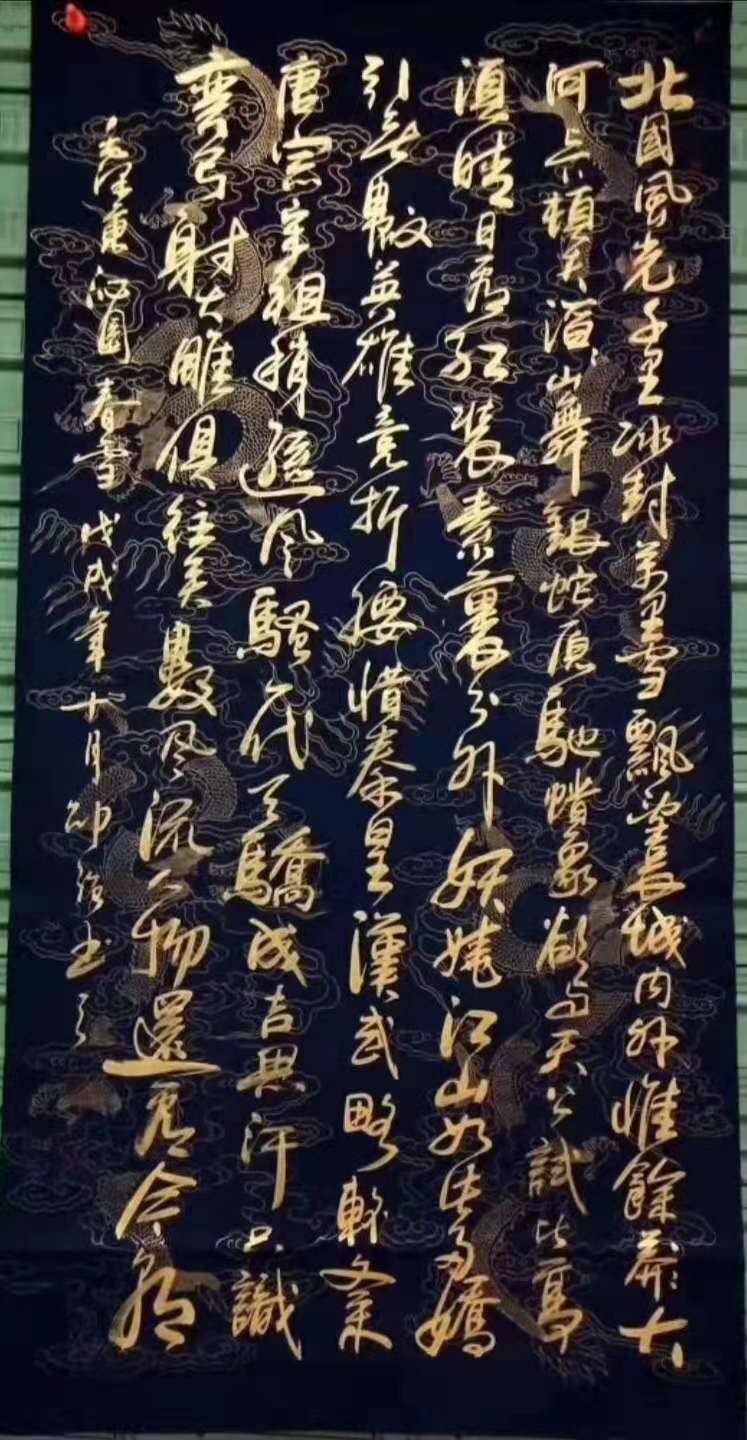 北國風光千里冰封萬里雪飄望長城内外惟餘莽〻大
河上下頓失滔〻山舞銀蛇原馳蠟象欲與天公試比高
須晴日看紅裝素裹分外妖嬈江山如此多嬌
引無數英雄競折腰惜秦皇漢武略輸文采
唐宗宋祖稍遜風騷一代天驕成吉思汗只識
彎弓射大雕俱往矣數風流人物還看今朝
毛澤東沁園春雪戊戌年十月書